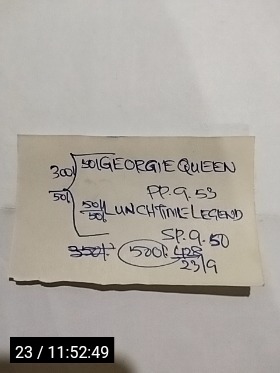 300/ 50/ GEORGIE QUEEN
50/ PP. 9. 53
50/ 50/ LUNCHTIME LEGEND
SP. 9. 50
500/ CDS
23/9
23 / 11:52:49